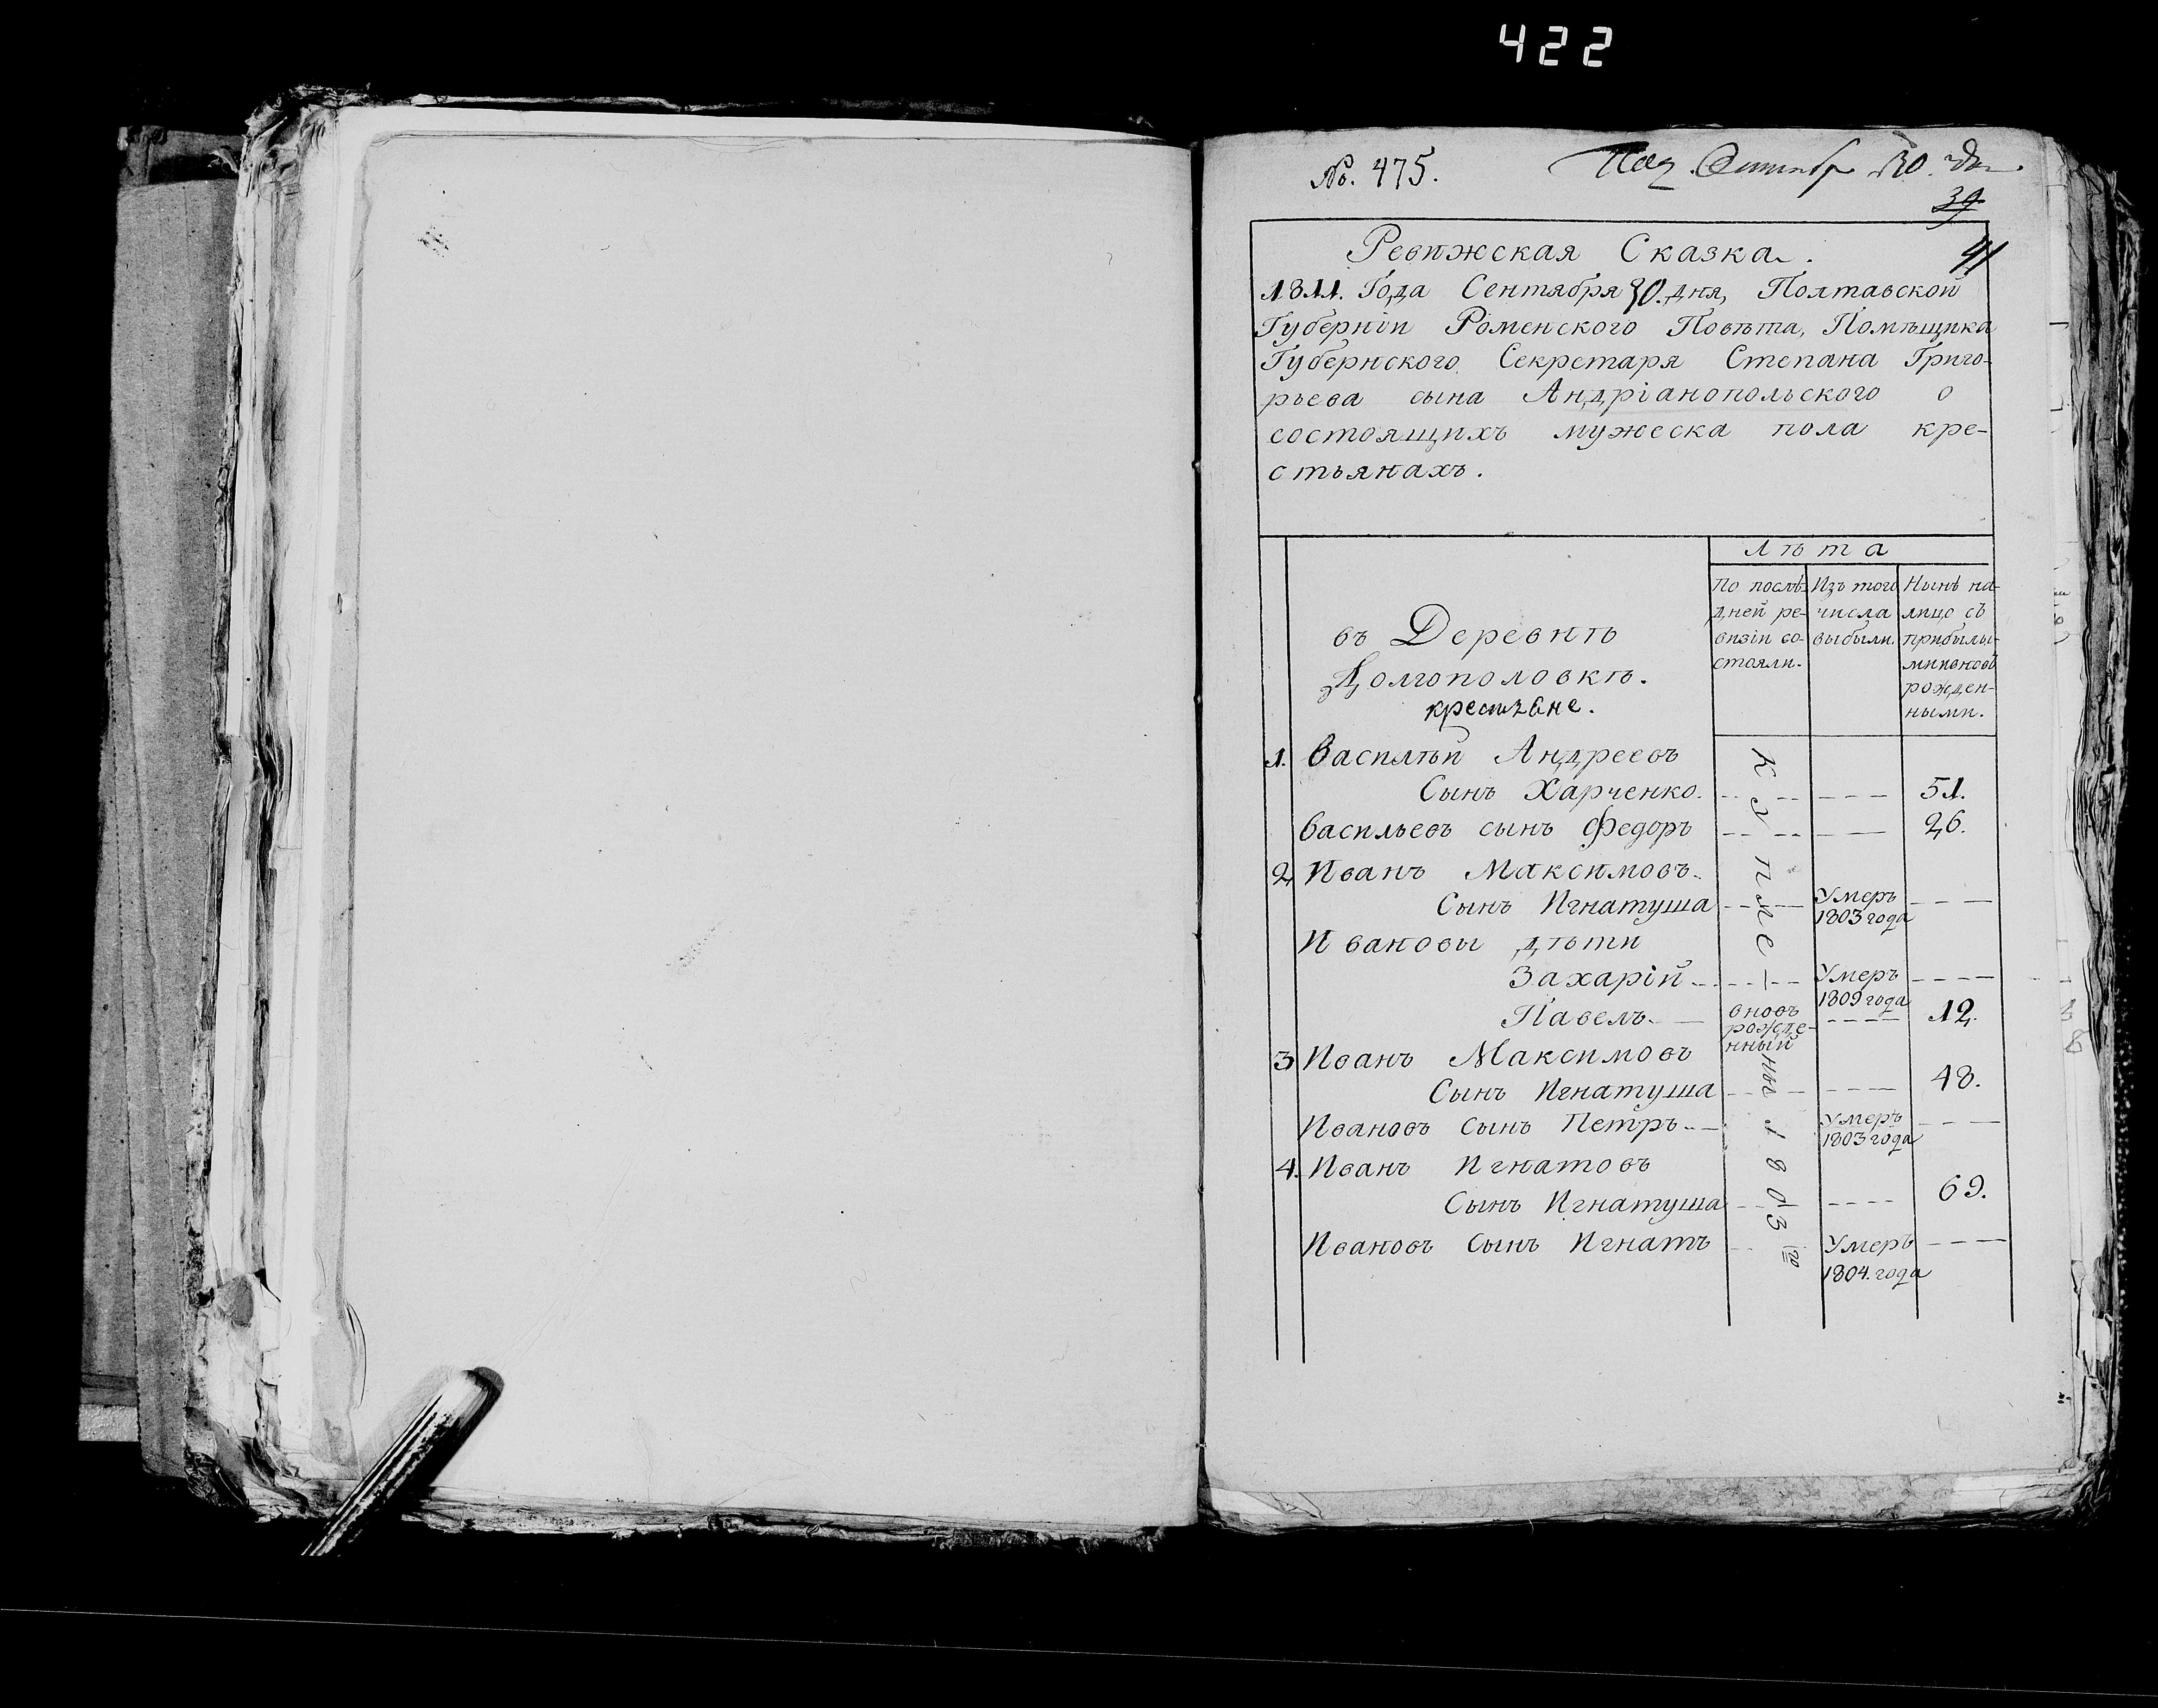 422
No. 475. Сентября 30. дня
39
41
Ревижская Сказка.
1811. Года Сентября 30. дня, Полтавской
Губерніи Роменского Повѣта, Помѣщика
Губернского Секретаря Степана Григо-
рьева сына Андріанопольского о
состоящихъ мужеска пола кре-
стьянахъ.
Лѣта
въ Деревнѣ
Долгополовкѣ.
крестьяне.
По послѣ-
дней ре-
визіи со-
стояли.
Изъ того
числа
выбыли.
Нынѣ на-
лицо съ
прибылы-
ми и вновь
рожден-
ными.
1. Василѣй Андреевъ
Сынъ Харченко. --- --- 51.
Васильевъ сынъ Федоръ --- --- 26.
2 Иванъ Максимовъ
Сынъ Игнатуша --- Умеръ 1803 года ---
Ивановы дѣти
Захарій --- Умеръ 1809 года ---
Павелъ вновь рожде-нный --- 12.
3 Иванъ Максимовъ
Сынъ Игнатуша --- --- 48.
Ивановъ Сынъ Петръ --- Умеръ 1803 года ---
4. Иванъ Игнатовъ
Сынъ Игнатуша --- --- 69.
Ивановъ Сынъ Игнатъ --- Умеръ 1804. года ---
Купленны 1803 го